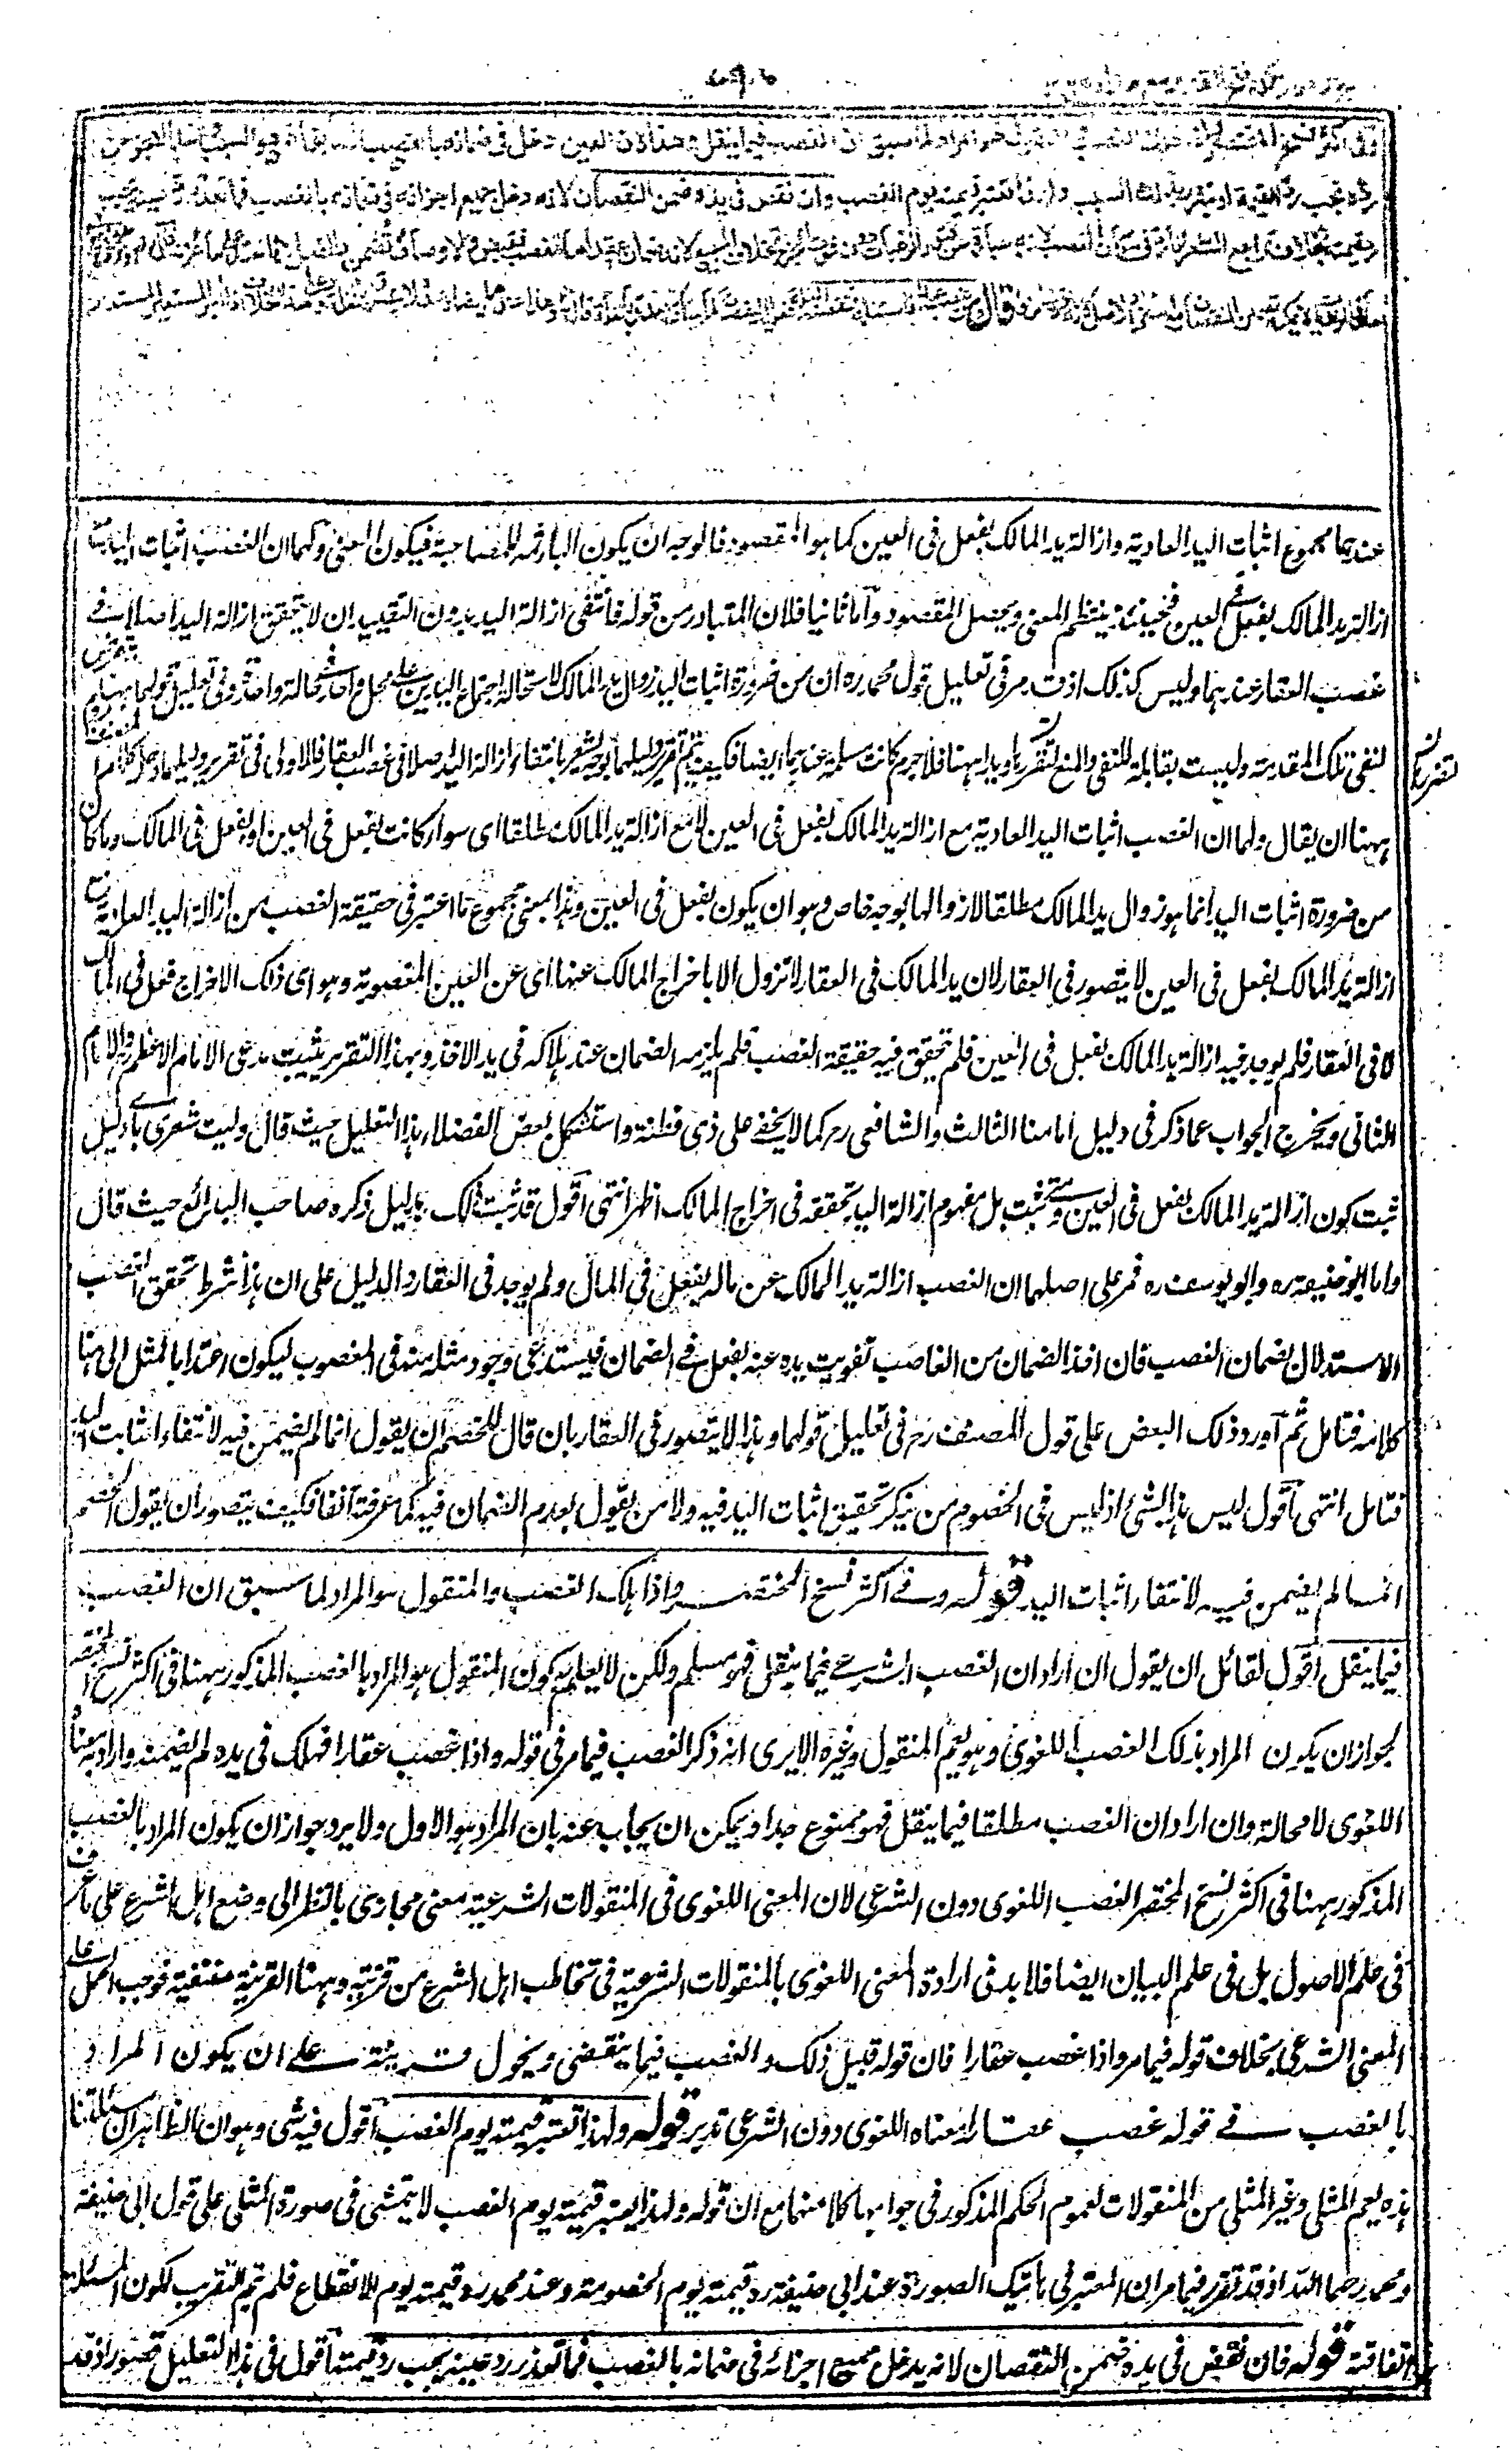 وفى اكثر نسخ المختصر واذا هلك الغصب والمنقول هو المراد لما سبق ان الغصب فيما ينقل وهذا لان العين دخل فى ضمانه بالغصب السابق اذ هو السبب وعند العجز عن
رده تجب رد القيمة او يتقرر بذلك السبب ولهذا تعتبر قيمته يوم الغصب وان نقص فى يده ضمن النقصان لانه دخل جميع اجزائه فى ضمانه بالغصب فما تعذر رد عينه يجب
رد قيمته بخلاف تراجع السعر اذا رد فى مكان الغصب لانه عبارة عن فتور الرغبات دون فوت الجزء وبخلاف المبيع لانه ضمان عقد اما الغصب فقبض والاوصاف تضمن بالفعل لا بالعقد على ما عرف
قال
عندهما مجموع اثبات اليد العادية وازالة يد المالك بفعل فى العين كما هو المقصود فالوجه ان يكون الباء فيه للمصاحبة فيكون المعنى ولهما ان الغصب اثبات اليد مع
ازالة يد المالك بفعل فى العين فحينئذ ينتظم المعنى ويحصل المقصود واما ثانيا فلان المتبادر من قوله فانتفى ازالة اليد بدون التقييد ان لا يتحقق ازالة اليد اصلا فى
غصب العقار عندهما وليس كذلك اذ قد مر فى تعليل قول محمد ره ان من ضرورة اثبات اليد زوال يد المالك لاستحالة اجتماع اليدين على محل واحد فى حالة واحدة وفى تعليل قولهما ههنا لم يتعرض
لنفى تلك المقدمة وليست بقابلة للنفى والمنع فلا جرم كانت مسلمة عندهما ايضا فكيف يتم تقرير دليلهما بوجه يشعر بانتفاء ازالة اليد اصلا فى غصب العقار فالاولى فى تقرير دليلهما وحل كلام المصنف
ههنا ان يقال ولهما ان الغصب اثبات اليد العادية مع ازالة يد المالك بفعل فى العين لا مع ازالة يد المالك مطلقا اى سواء كانت بفعل فى العين او بفعل فى المالك وما كان
من ضرورة اثبات اليد انما هو زوال يد المالك مطلقا لا زوالها بوجه خاص وهو ان يكون بفعل فى العين وهذا بمعنى مجموع ما اعتبر فى حقيقة الغصب من ازالة اليد العادية
ازالة يد المالك بفعل فى العين لا يتصور فى العقار لان يد المالك فى العقار لا تزول الا باخراج المالك عنها اى عن العين المغصوبة وهو اى ذلك الاخراج فعل فى المالك
لا فى العقار فلم يوجد فيه ازالة يد المالك بفعل فى العين فلم تحقق فيه حقيقة الغصب فلم يلزمه الضمان عند هلاكه فى يد الآخذ وبهذا التقرير يثبت مدعى الامام الاعظم والامام
الثانى ويخرج الجواب عما ذكر فى دليل امامنا الثالث والشافعى رح كما لا يخفى على ذى فطنة واستشكل بعض الفضلاء هذا التعليل حيث قال وليت شعرى باى دليل
ثبت كون ازالة يد المالك بفعل فى العين ومتى ثبت بل مفهوم ازالة اليد تحققه فى اخراج المالك اظهر انتهى اقول قد ثبت ذلك بدليل ذكره صاحب البدائع حيث قال
واما ابو حنيفة ره وابو يوسف ره فمر على اصلهما ان الغصب ازالة يد المالك عن ماله بفعل فى المال ولم يوجد فى العقار والدليل على ان هذا شرط تحقق الغصب
الاستدلال بضمان الغصب فان اخذ الضمان من الغاصب تفويت يده عنه بفعل فى الضمان فيستدعى وجود مثله منه فى المغصوب ليكون اعتداء بالمثل الى هنا
كلامه فتامل ثم اورد ذلك البعض على قول المصنف رح فى تعليل قولهما وهذا لا يتصور فى العقار بان قال للخصم ان يقول انما لم يضمن فيه لانتفاء اثبات اليد
فتامل انتهى اقول ليس هذا بشئ اذ ليس فى الخصوم من ينكر تحقيق اثبات اليد فيه ولا من يقول بعدم الضمان فيه كما عرفته آنفا فكيف يتصور ان يقول الخصم
انما لم يضمن فيه لانتفاء اثبات اليد قوله وفى اكثر نسخ المختصر واذا هلك الغصب والمنقول هو المراد لما سبق ان الغصب
فيما ينقل اقول لقائل ان يقول ان اراد ان الغصب الشرعى فيما ينقل فهو مسلم ولكن لا يعلم به كون المنقول هو المراد بالغصب المذكور ههنا فى اكثر نسخ المختصر
لجواز ان يكون المراد بذلك الغصب اللغوى وهو يعم المنقول وغيره الا يرى انه ذكر الغصب فيما مر فى قوله واذا غصب عقارا فهلك فى يده لم يضمنه واراد به معناه
اللغوى لا محالة وان اراد ان الغصب مطلقا فيما ينقل فهو ممنوع جدا ويمكن ان يجاب عنه بان المراد هو الاول ولا يرد جواز ان يكون المراد بالغصب
المذكور ههنا فى اكثر نسخ المختصر الغصب اللغوى دون الشرعى لان المعنى اللغوى فى المنقولات الشرعية معنى مجازى بالنظر الى وضع اهل الشرع على ما عرف
فى علم الاصول بل فى علم البيان ايضا فلا بد فى ارادة المعنى اللغوى بالمنقولات الشرعية فى تخاطب اهل الشرع من قرينة وههنا القرينة منتفية فوجب الحمل على
المعنى الشرعى بخلاف قوله فيما مر واذا غصب عقارا فان قوله قبيل ذلك والغصب فيما ينقضى ويحول قرينة على ان يكون المراد
بالغصب فى قوله غصب عقارا معناه اللغوى دون الشرعى تدبر قوله ولهذا تعتبر قيمته يوم الغصب اقول فيه شئ وهو ان الظاهر ان مسئلتنا
هذه يعم المثلى وغير المثلى من المنقولات لعموم الحكم المذكور فى جوابها كلا منهما مع ان قوله ولهذا يعتبر قيمته يوم الغصب لا يتمشى فى صورة المثلى على قول ابى حنيفة
ومحمد رحمهما الله اذ قد تقرر فيما مر ان المعتبر فى هاتيك الصورة عند ابى حنيفة رد قيمته يوم الخصومة وعند محمد رد قيمته يوم الانقطاع فلم يتم التقريب لكون المسئلة
اتفاقية قوله فان نقص فى يده ضمن النقصان لانه يدخل جميع اجزائه فى ضمانه بالغصب فما تعذر رد عينه يجب رد قيمته اقول فى هذا التعليل قصور اذ قد